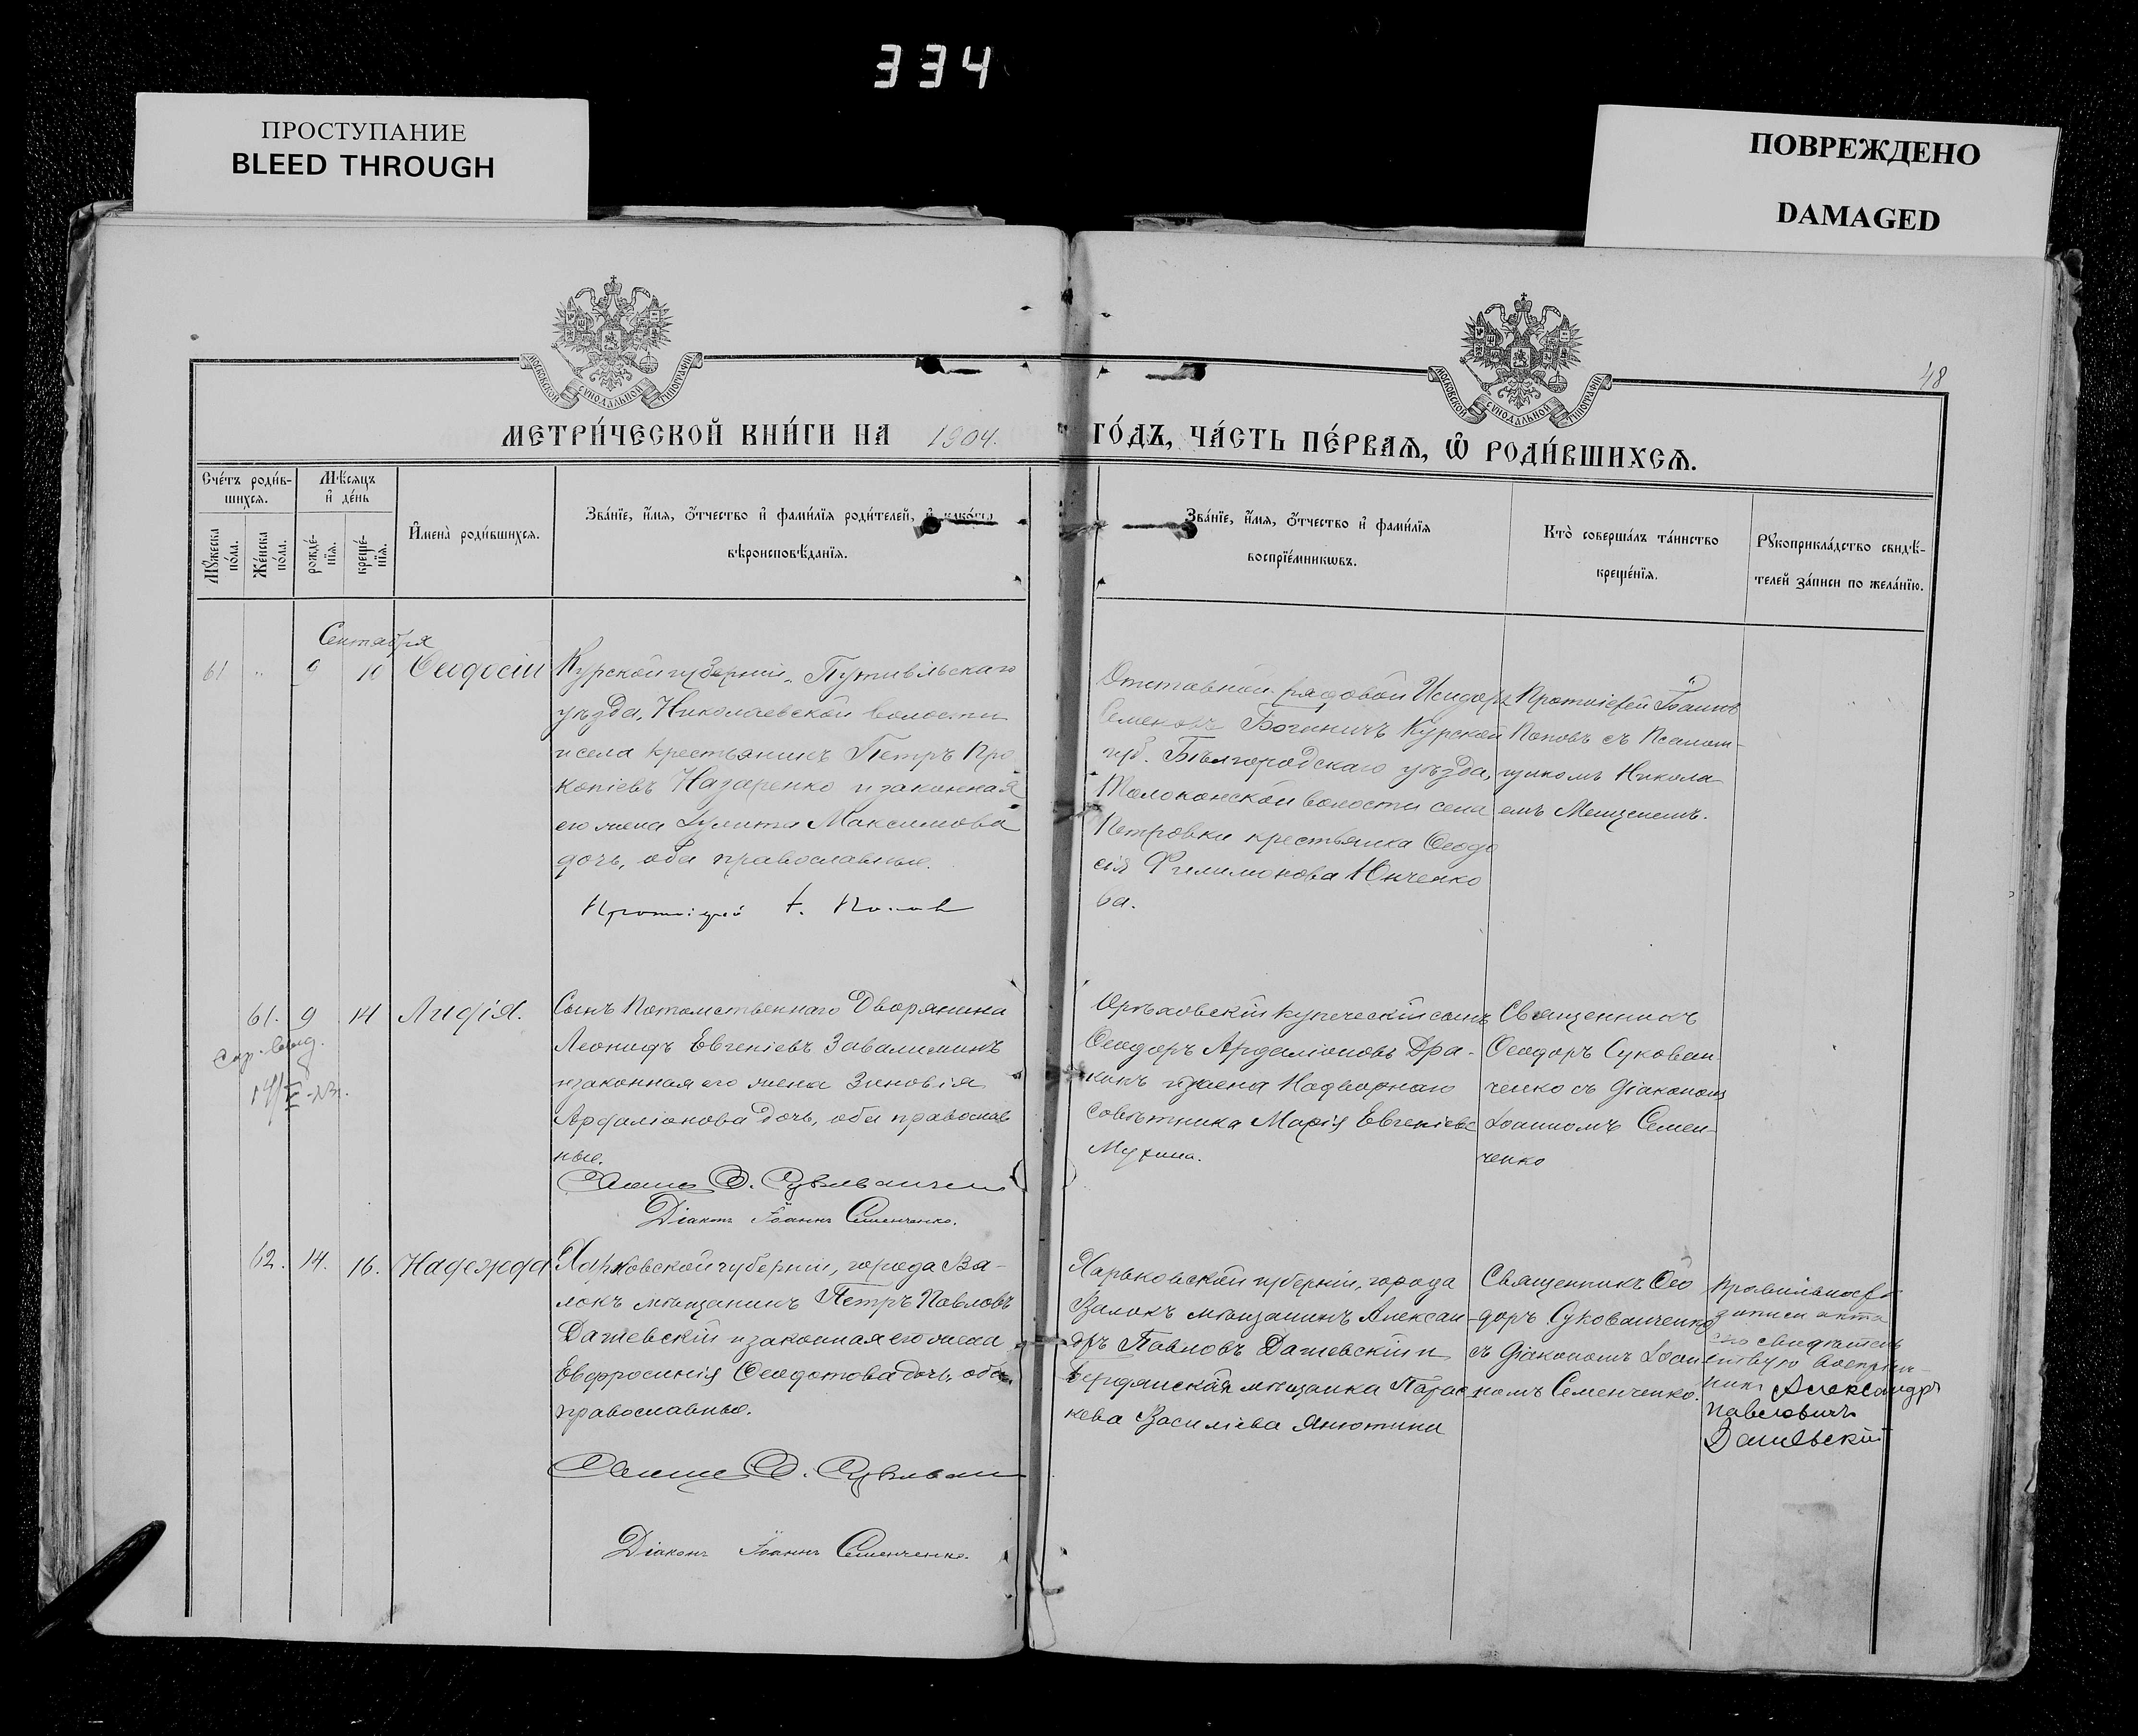 334
ПРОСТУПАНИЕ
BLEED THROUGH
ПОВРЕЖДЕНО
DAMAGED
МОСКОВСКОЙ СѴНОДАЛЬНОЙ ТИПОГРАФІИ
МОСКОВСКОЙ СѴНОДАЛЬНОЙ ТИПОГРАФІИ
48
МЕТРИ́ЧЕСКОЙ КНИ́ГИ НА 1904. ГО́ДЪ, ЧА́СТЬ ПЕ́РВАѦ, Ѽ РОДИ́ВШИХСѦ.
Сче́тъ роди́в-
шихсѧ.
Мꙋжеска по́ла.
Же́нска по́ла.
Мѣ́сѧцъ
и҆ де́нь
рожде́-
нїѧ.
креще́-
нїѧ.
И҆мена̀ роди́вшихсѧ.
Зва́нїе, и҆́мѧ, ѻ҆́тчество и҆ фами́лїѧ роди́телей, и҆ како́гѡ
вѣроисповѣ́данїѧ.
Зва́нїе, и҆́мѧ, ѻ҆́тчество и҆ фами́лїѧ
воспрїе́мникѡвъ.
Кто̀ соверша́лъ та́инство
креще́нїѧ.
Рꙋкоприкла́дство свидѣ́-
телей за́писи по жела́нїю.
Сентября
61 " 9 10 Ѳеодосій
Курской губерніи, Путивльскаго
уѣзда, Николаевской волости
и села крестьянинъ Петръ Про
копіевъ Назаренко и законная
его жена Іулита Максимова
дочь, оба православные.
Протоіерей І. Поповъ
Отставной рядовой Исидоръ
Семеновъ Курской
губ. Бѣлгородскаго уѣзда,
Толоконской волости села
Петровки крестьянка Ѳеодо
сія Филимонова Юнченко
ва.
Протоіерей Іоаннъ
Поповъ съ Псалом-
щикомъ Никола-
емъ
61. 9 14 Лидія.
Сынъ Потомственнаго Дворянина
Леонидъ Евгеніевъ Завалишинъ
и законная его жена Зиновія
Ардаліонова дочь, оба православ
ные.
Ѳ. Сукованченко
Діаконъ Іоаннъ Семенченко.
Орѣховскій купеческій сынъ
Ѳеодоръ Ардаліоновъ Дра-
кинъ и жена Надворнаго
Совѣтника Марія Евгеніева
Мухина.
Священникъ
Ѳеодоръ Сукован
ченко съ Діакономъ
Іоанномъ Семен-
ченко
62. 14. 16. Надежда
Харьковской губерніи, города Ва-
локъ мѣщанинъ Петръ Павловъ
Дашевскій и законная его жена
Евфросинія Ѳеодотова дочь, оба
православные.
Ѳ. Сукован
Діаконъ Іоаннъ Семенченко.
Харьковской губерніи, города
Валокъ мѣщанинъ Алексан-
дръ Павловъ Дашевскій и
Бердянская мѣщанка Парас
кева Василіева Анютина
Священникъ Ѳео
доръ Суковаиченко
съ Діакономъ Іоан
номъ Семенченко.
Правильность
записи акта
сего свидѣтель
ствую воспріем-
никъ Александръ
Павловичъ
Дашевскій